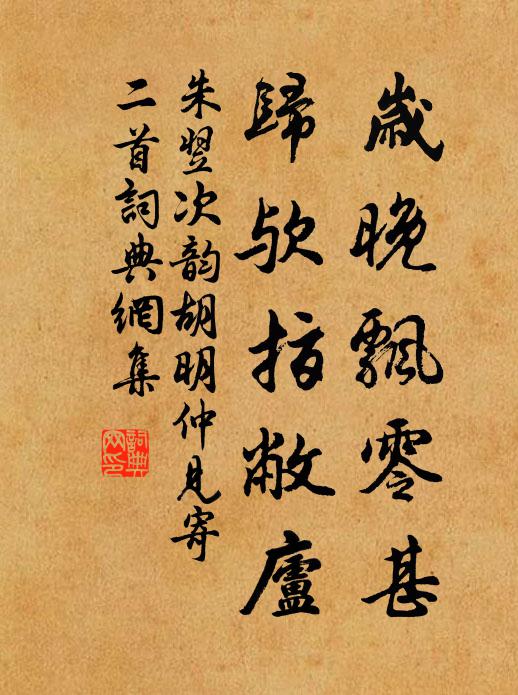 歲晚飄零甚
歸歟指敝廬
朱翌次韵胡明仲見寄
二首詞典網集
詞典網印